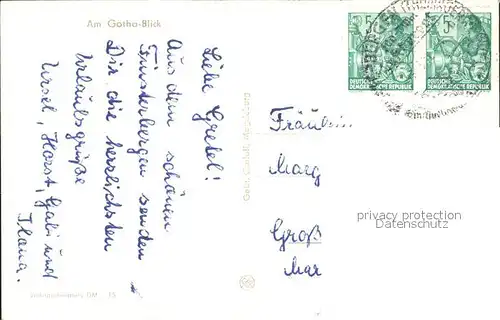 Am Gotha-Blick
Liebe Gretel!
Aus dem schönen
Finsterbergen senden
Dir die herzlichsten
Urlaubsgrüße
Ursel, Horst, Gabi und
Ilana.
Fräulein
Marg
Groß
Mar
5
DEUTSCHE
DEMOKRATISCHE REPUBLIK
5
DEUTSCHE
DEMOKRATISCHE REPUBLIK
privacy protection
Datenschutz